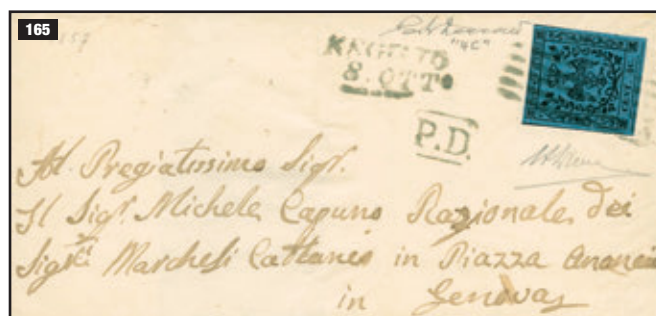 165
"4C"
REGGIO
8. OTT
P.D.
Al Pregiatissimo Sigr.
Il Sigr. Michele Capuno Razionale dei
Sigri Marchesi Cattaneo in Piazza
in Genova